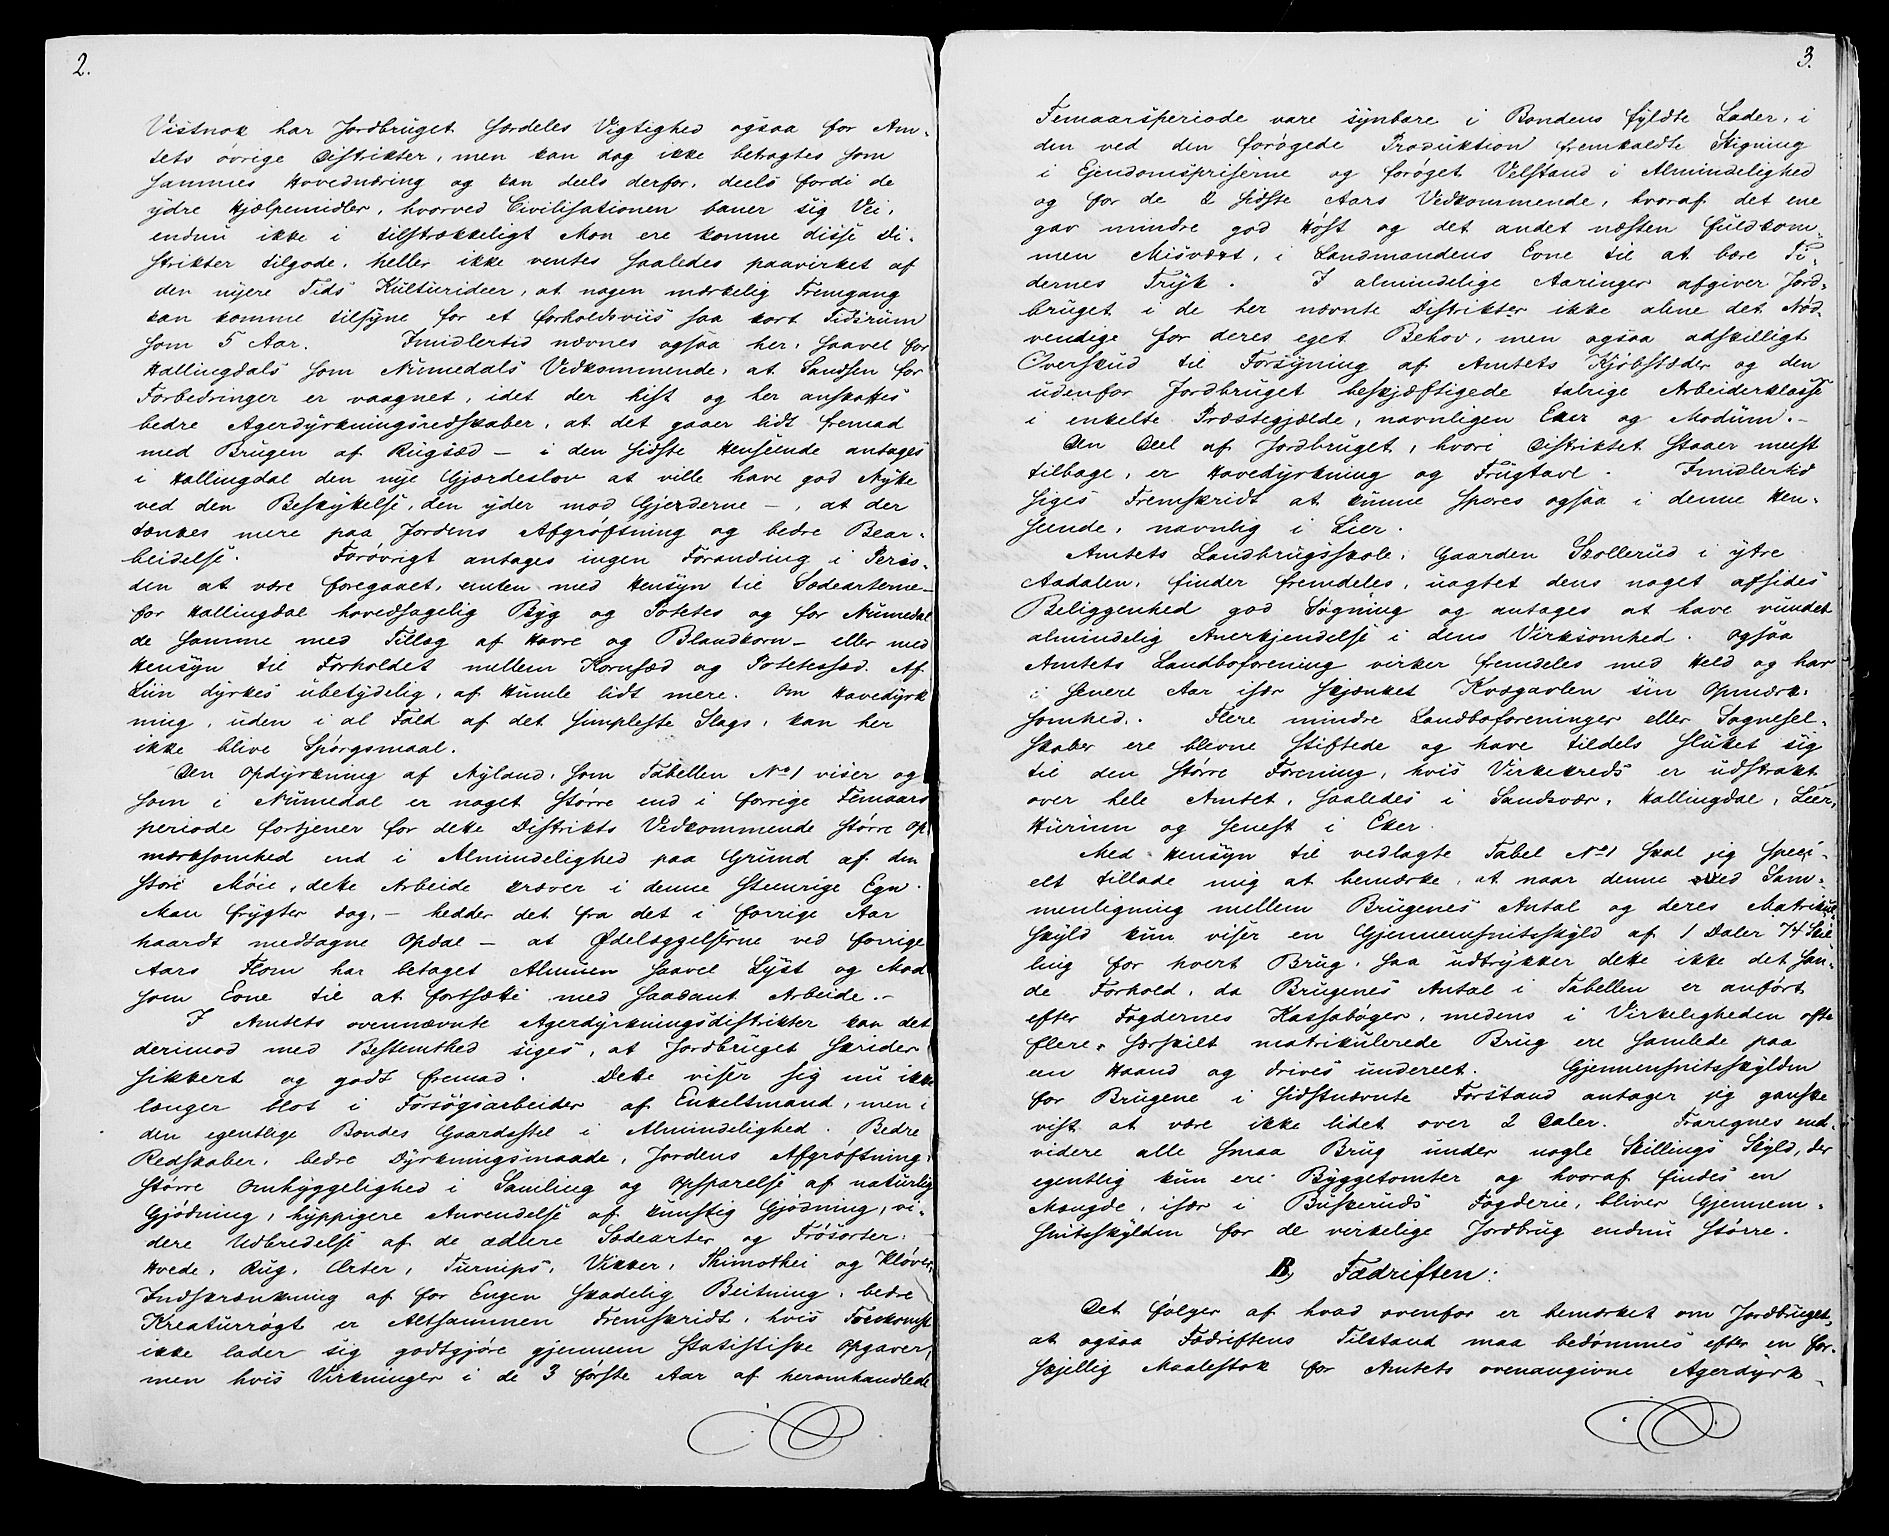 2.
Vistnok har Jordbruget særdeles Vigtighed ogsaa for Am-
tets øvrige Distrikter, men kan dog ikke betragtes som
sammes Hovednæring og kan deels derfor, deels fordi de
ydre Hjælpemidler, hvorved Civilisationen baner sig Vei,
endnu ikke i tilstrækkeligt Mon ere komne disse Di-
strikter tilgode, heller ikke ventes saaledes paavirket af
den nyere Tids Kulturideer, at nogen mærkelig Fremgang
kan komme tilsyne for et forholdsviis saa kort Tidsrum
som 5 Aar. Imidlertid nævnes ogsaa her, saavel for
Hallingdals som Numedals Vedkommende, at Sandsen for
Forbedringer er vaagnet, idet der hist og her anskaffes
bedre Agerdyrkningsredskaber, at det gaaer lidt fremad
med Brugen af Rugsæd – i den sidste Henseende antages
i Hallingdal den nye Gjærdeslov at ville have god Nytte
ved den Beskyttelse, den yder mod Gjerderne –, at der
tænkes mere paa Jordens Afgrøftning og bedre Bear-
beidelse. Forøvrigt antages ingen Forandring i Perio-
den at være foregaaet, enten med Hensyn til Sædearterne –
for Hallingdal hovedsagelig Byg og Potetes og for Numedal
de samme med Tillæg af Havre og Blandkorn – eller med
Hensyn til Forholdet mellem Kornsæd og Potetessæd. Af
Liin dyrkes ubetydelig, af Humle lidt mere. Om Havedyrk
ning, uden i al Fald af det simpleste Slags, kan her
ikke blive Spørgsmaal.
Den Opdyrkning af Nyland, som Tabellen No 1 viser og
som i Numedal er noget større end i forrige Femaars
periode fortjener for dette Distrikts Vedkommende større Op
mærksomhed end i Almindelighed paa Grund af den
store Møie, dette Arbeide kræver i denne steenrige Egn.
Man frygter dog, – hedder det fra det i forrige Aar
haardt medtagne Opdal – at Ødelæggelserne ved forrige
Aars Flom har betaget Almuen saavel Lyst og Mod
som Evne til at fortsætte med saadant Arbeide. –
I Amtets ovennævnte Agerdyrkningsdistrikter kan det
derimod med Bestemthed siges, at Jordbruget skrider
sikkert og godt fremad. Dette viser sig nu ikke
længer blot i Forsøgsarbeider af Enkeltmand, men i
den egentlige Bondes Gaardsstel i Almindelighed. Bedre
Redskaber, bedre Dyrkningsmaade, Jordens Afgrøftning,
større Omhyggelighed i Samling og Opsparelse af naturlig
Gjødning, hyppigere Anvendelse af kunstig Gjødning, vi-
dere Udbredelse af de ædlere Sædearter og Frøsorter:
Hvede, Rug, Erter, Turnips, Vikker, Thimothei og Kløver,
Indskrænkning af for Engen skadelig Beitning, bedre
Kreaturrøgt er Altsammen Fremskridt, hvis Forekomst
ikke lader sig godtgjøre gjennem statistiske Opgaver,
men hvis Virkninger i de 3 første Aar af heromhandlede
3.
Femaarsperiode vare synbare i Bondens fyldte Lader, i
den ved den forøgede Produktion fremkaldte Stigning
i Ejendomspriserne og forøget Velstand i Almindelighed
og for de 2 sidste Aars Vedkommende, hvoraf det ene
gav mindre god Høst og det andet næsten fuldkom-
men Misvæxt, i Landmandens Evne til at bære Ti-
dernes Tryk. I almindelige Aaringer afgiver Jord-
bruget i de her nævnte Distrikter ikke alene det Nød-
vendige for deres eget Behov, men ogsaa adskilligt
Overskud til Forsyning af Amtets Kjøbstæder og den
udenfor Jordbruget beskjæftigede talrige Arbeiderklasse
i enkelte Præstegjælde, navnligen Eker og Modum. –
Den Deel af Jordbruget, hvori Distriktet staaer meest
tilbage, er Havedyrkning og Frugtavl. Imidlertid
siges Fremskridt at kunne spores ogsaa i denne Hen-
seende, navnlig i Lier.
Amtets Landbrugsskole, Gaarden Skollerud i ytre
Aadalen, finder fremdeles, uagtet dens noget afsides
Beliggenhed god Søgning og antages at have vundet
almindelig Anerkjendelse i dens Virksomhed. Ogsaa
Amtets Landboforening virker fremdeles med Held og har
i senere Aar især skjænket Kvægavlen sin Opmærk-
somhed. Flere mindre Landboforeninger eller Sognesel-
skaber ere blevne stiftede og have tildels sluttet sig
til den større Forening, hvis Virkekreds er udstrakt
over hele Amtet, saaledes i Sandsvær, Hallingdal, Lier,
Hurum og senest i Eker.
Med Hensyn til vedlagte Tabel No 1 skal jeg speci-
elt tillade mig at bemærke, at naar denne ved Sam-
menligning mellem Brugenes Antal og deres Matrikul-
skyld kun viser en Gjennemsnitsskyld af 1 Daler 74 Skil
ling for hvert Brug, saa udtrykker dette ikke det san-
de Forhold, da Brugenes Antal i Tabellen er anført
efter Fogdernes Kassabøger, medens i Virkeligheden ofte
flere særskilt matrikulerede Brug ere samlede paa
en Haand og drives undereet. Gjennemsnitsskylden
for Brugene i sidstnævnte Forstand antager jeg ganske
vist at være ikke lidet over 2 Daler. Fraregnes end-
videre alle smaa Brug under nogle Skillings Skyld, der
egentlig kun ere Byggetomter og hvoraf findes en
Mængde, især i Buskeruds Fogderie, bliver Gjennem-
snitsskylden for de virkelige Jordbrug endnu større.
B, Fædriften:
Det følger af hvad ovenfor er bemærket om Jordbruget,
at ogsaa Fædriftens Tilstand maa bedømmes efter en for-
skjellig Maalestok for Amtets ovenangivne Agerdyrk-